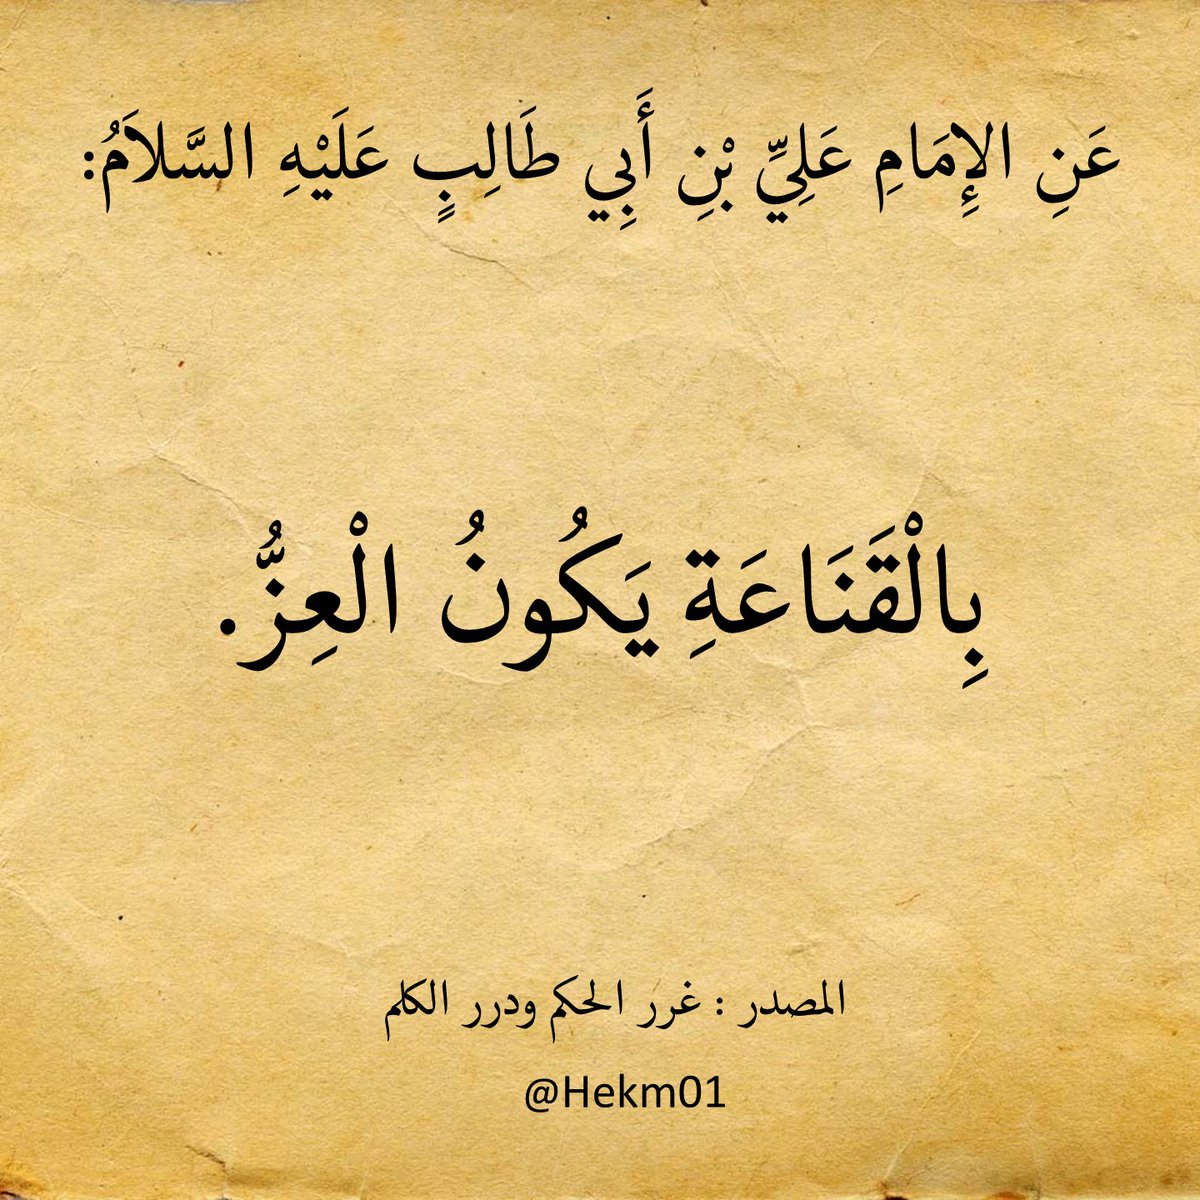 عَنِ الإِمَامِ عَلِيِّ بْنِ أَبِي طَالِبٍ عَلَيْهِ السَّلاَمُ:
بِالْقَنَاعَةِ يَكُونُ الْعِزُّ.
المصدر : غرر الحكم ودرر الكلم
@Hekm01